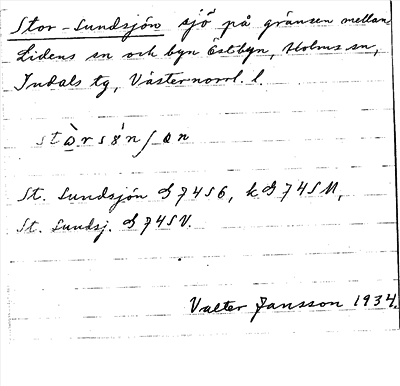 Stor-Sundsjön sjö på gränsen mellan
Lidens sn och byn Östbyn, Holms sn,
Indals tg, Västernorrl. l.
St. Sundsjön G 74 S6, kG 74 SM,
St. Sundsj. G 74 SV.
Valter Jansson 1934.